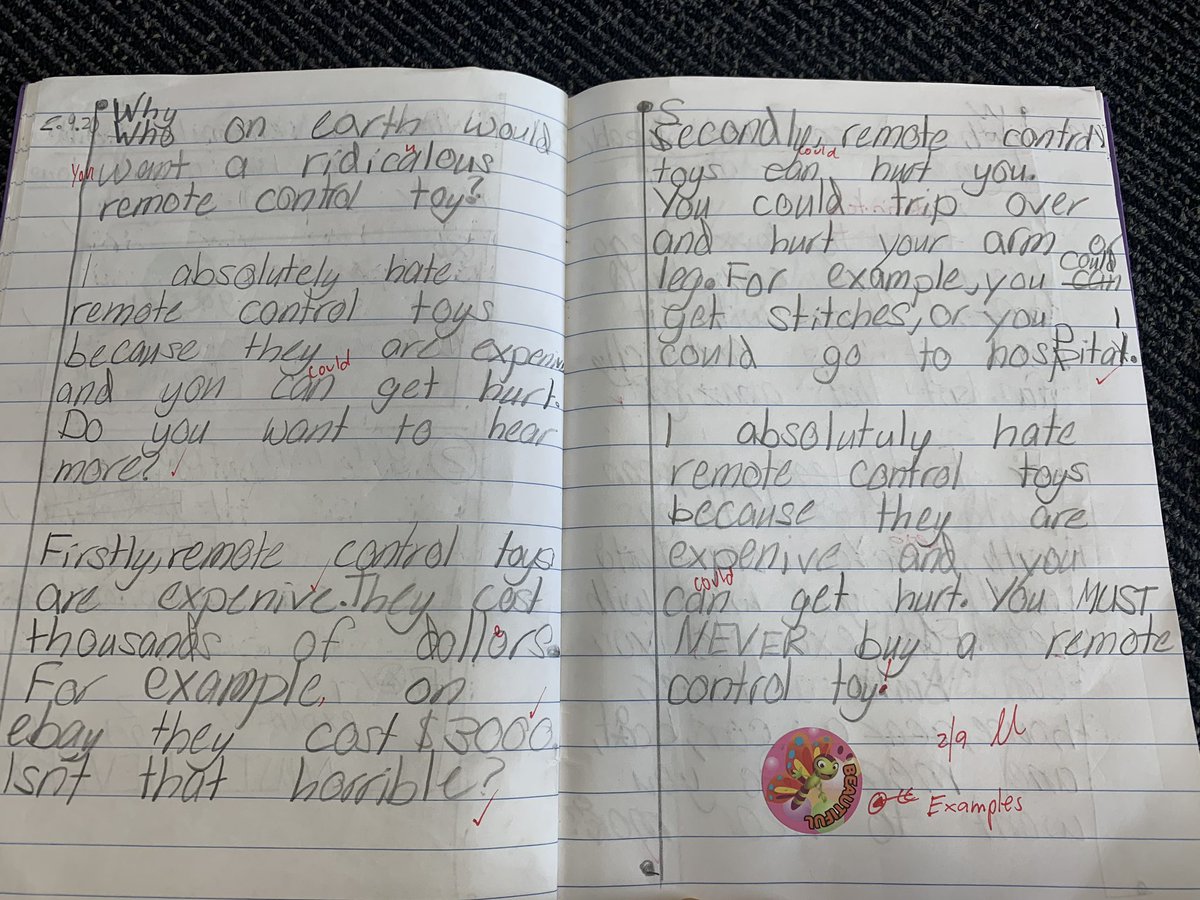 2.9.2
Why
Who on earth would
You want a ridiculous
remote control toy?
I absolutely hate
remote control toys
because they are expeniv
could
and you can get hurt.
Do you want to hear
more?
Firstly, remote control toys
are expenive. They cost
thousands of dollers.
For example, on
ebay they cost $3000.
Isnt that horrible?
S
Secondly, remote control
could
toys can hurt you.
You could trip over
and hurt your arm or
could
leg. For example, you can
get stitches, or you
could go to hospital.
I absolutuly hate
remote control toys
because they are
expenive and you
could
can get hurt. You MUST
NEVER buy a remote
control toy!
2/9
BEAUTIFUL
Examples